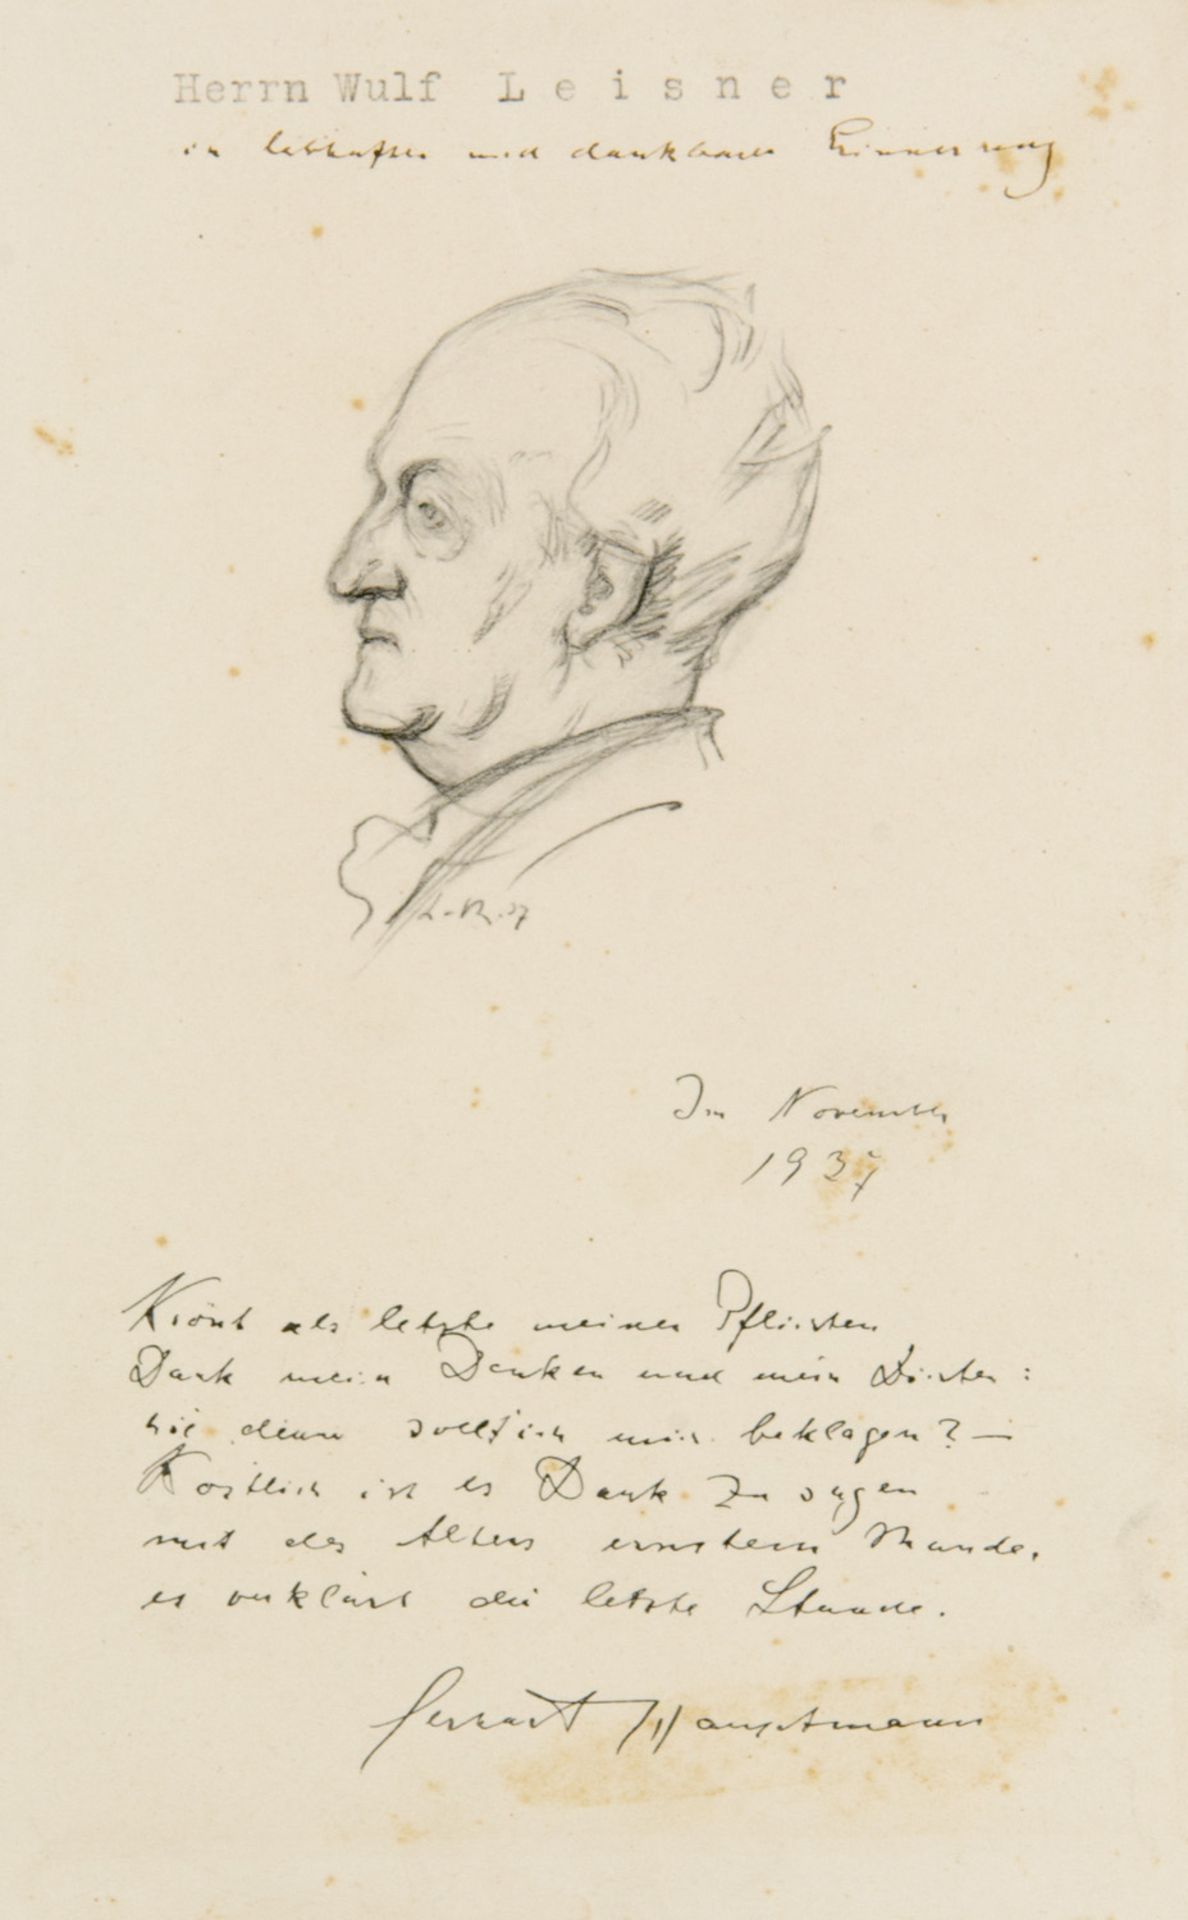 Herrn Wulf Leisner
in lebhafter und dankbarer Erinnerung
Im November
1937
Krönt als letzte meiner Pflichten
Dank mein Denken und mein Dichten:
wie denn sollt ich mich beklagen? —
Köstlich ist es Dank zu sagen
mit des Alters ernstem Munde,
es verklärt die letzte Stunde.
Gerhart Hauptmann